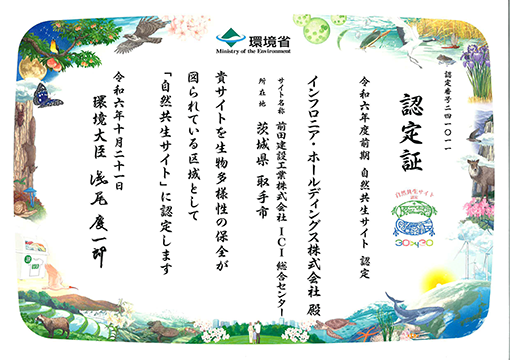 環境省
Ministry of the Environment
認定番号二四一〇一一
認定証
自然共生サイト
30by30
令和六年度前期 自然共生サイト 認定
インフロニア・ホールディングス株式会社 殿
サイト名称 前田建設工業株式会社 ICI 総合センター
所在地 茨城県 取手市
貴サイトを生物多様性の保全が
図られている区域として
「自然共生サイト」に認定します
令和六年十月二十一日
環境大臣 浅尾 慶一郎